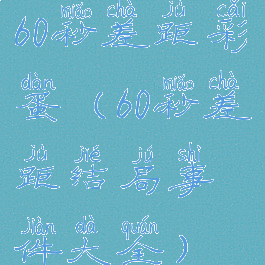 miǎo chà jù cǎi
60秒差距彩
dàn miǎo chà
蛋(60秒差
jù jié jú shì
距结局事
jiàn dà quán
件大全)